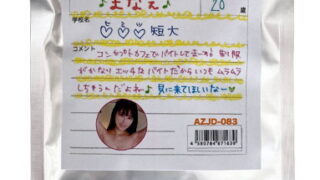 ♪まなえ♪ 20 歳
学校名
♡♡♡短大
コメント
コンセプトカフェでバイトしてまーす♪制服
がかなりエッチなバイトだからいつもムラムラ
しちゃうんだよねぇ♪見に来てほしいなー♥
AZJD-083
4580784671639